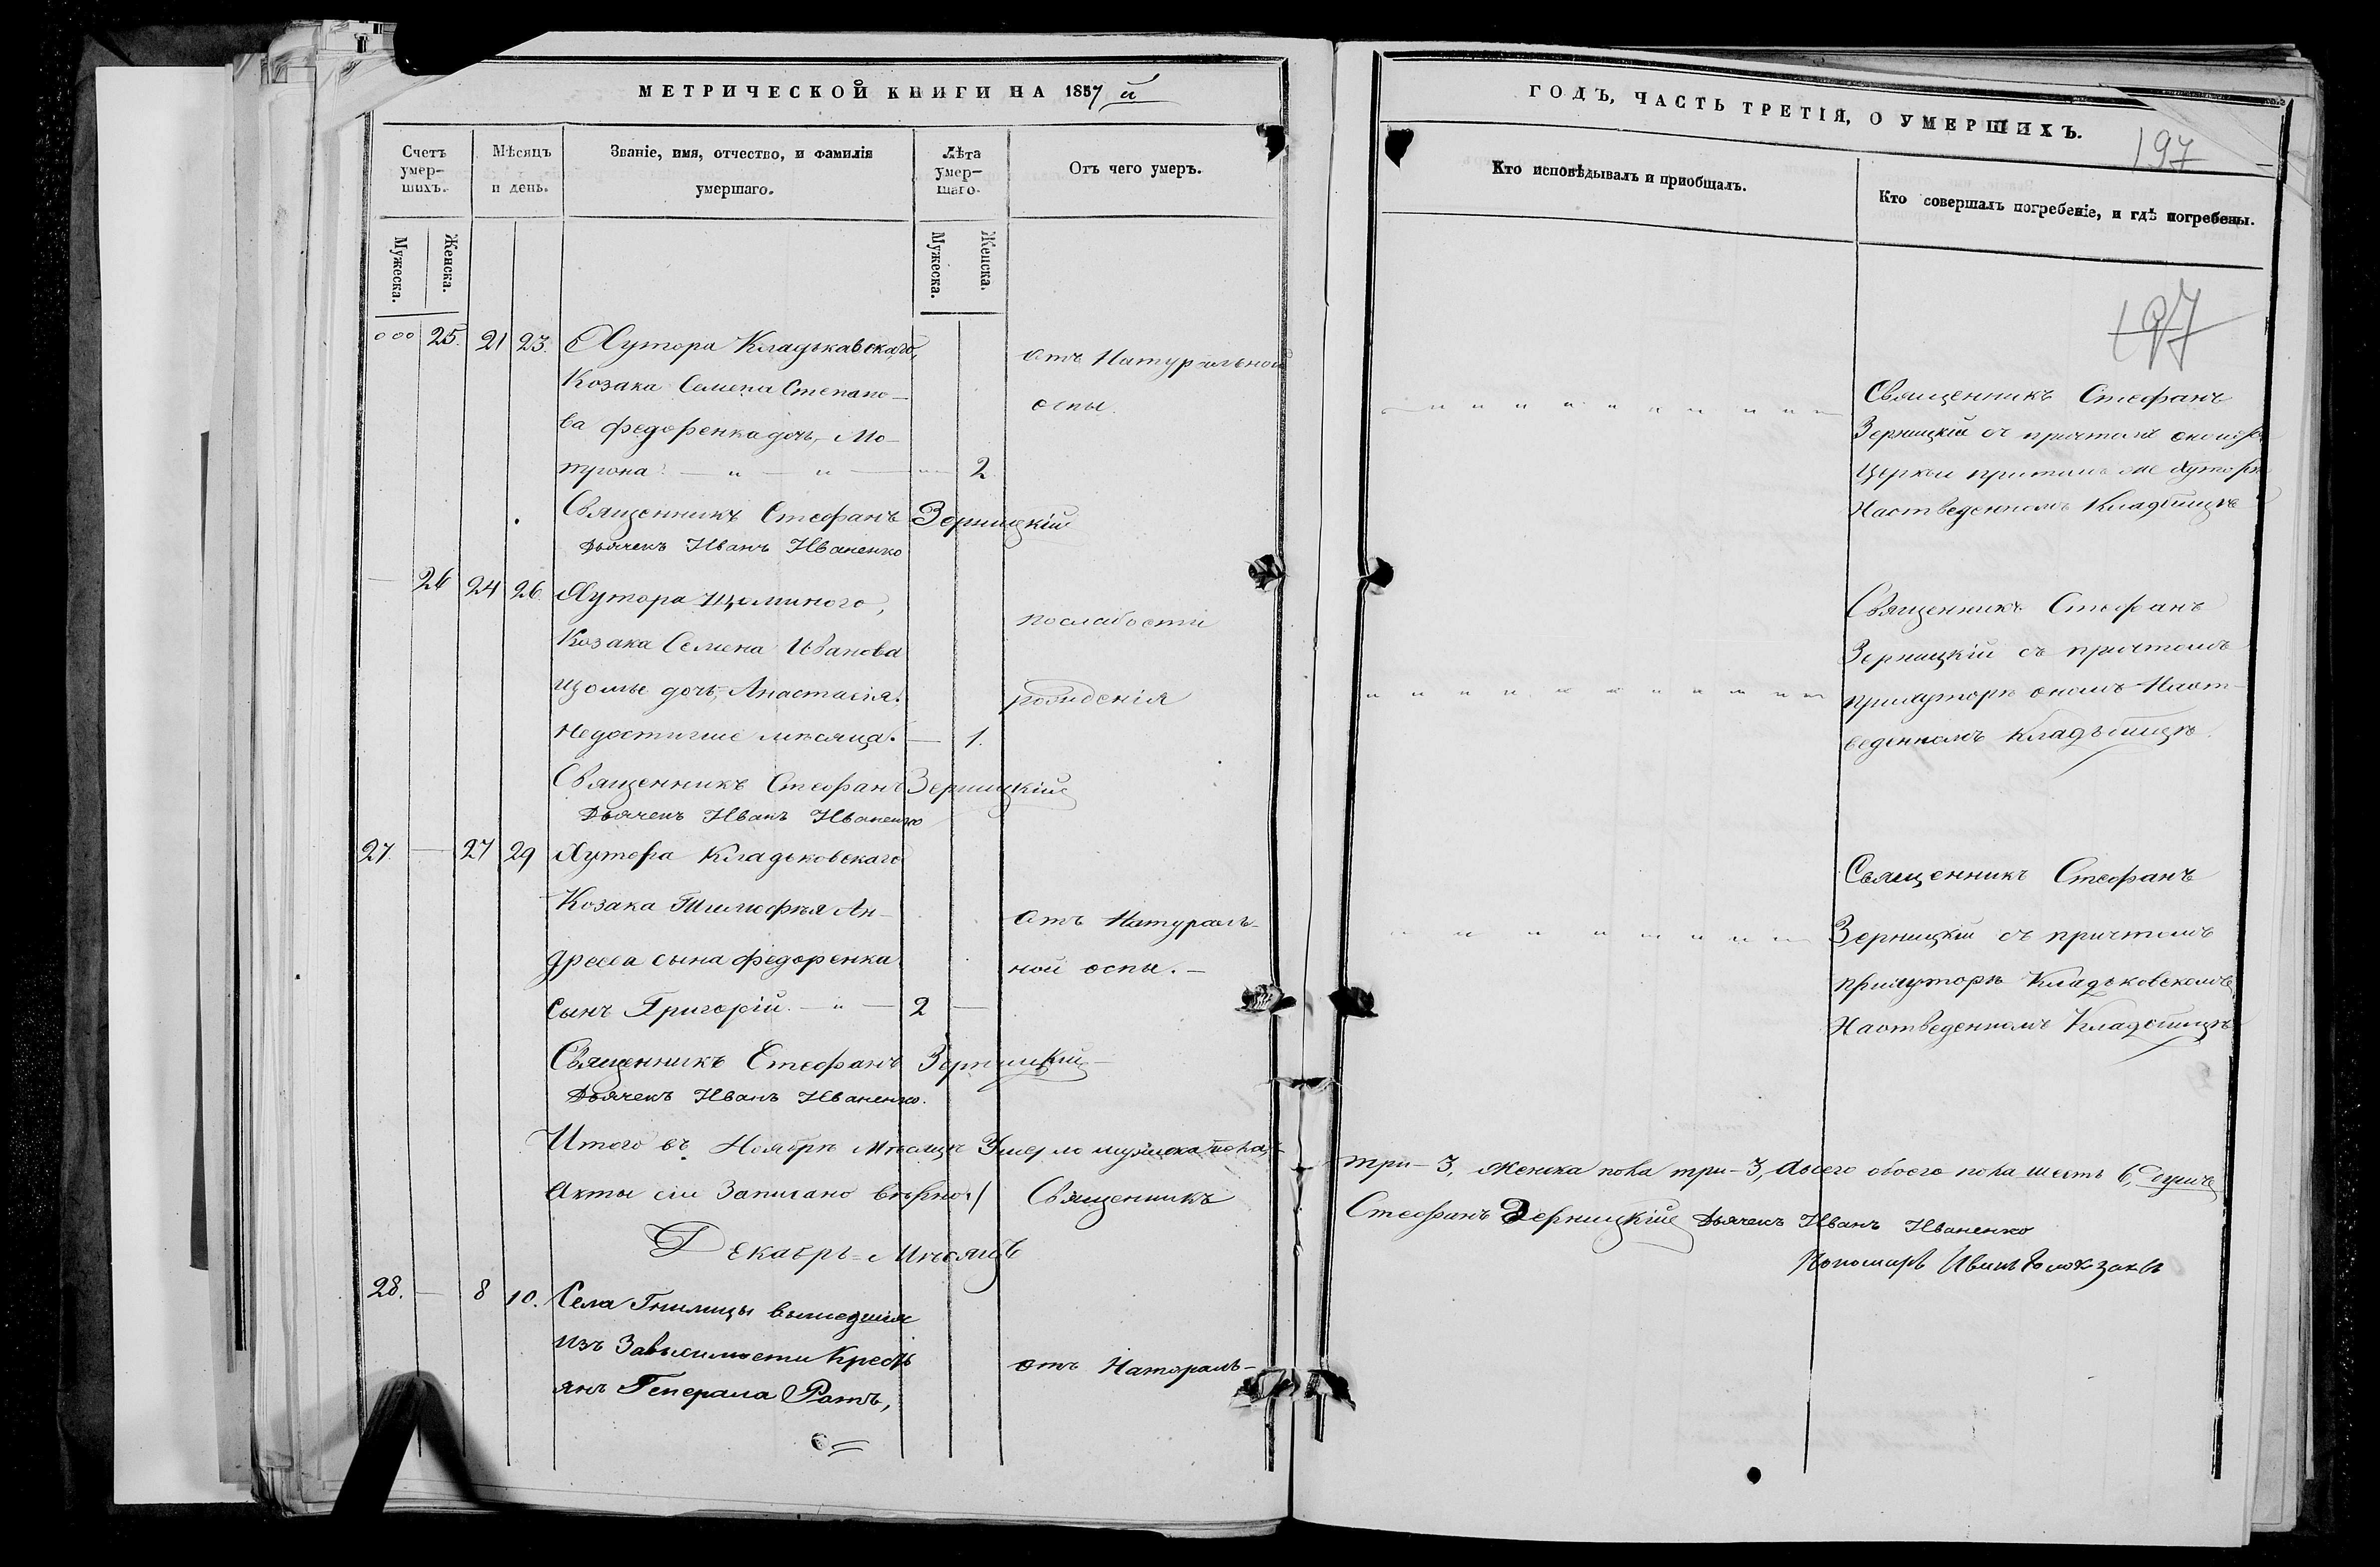 МЕТРИЧЕСКОЙ КНИГИ НА 1857 й
Счетъ умер-шихъ.
Мѣсяцъ и день.
Званіе, имя, отчество, и фамилія умершаго.
Лѣта умер-шаго.
Отъ чего умеръ.
Мужеска.
Женска.
Мужеска.
Женска.
25. 21 23. Хутора Кладьковскаго,
Козака Семена Степано-
ва Федоренка дочь, Мо-
трона 2.
Отъ Натуральной
оспы.
Священникъ Стефанъ Зерницкій
Дьячекъ Иванъ Иваненко
26 24 26. Хутора
Козака Семена Иванова
дочь, Анастасія.
Недостигше мѣсяца. — 1.
послабости
рожденія
Священникъ Стефанъ Зерницкій
Дьячекъ Иванъ Иваненко
27. — 27 29 Хутора Кладьковскаго
Козака Тимофѣя Ан-
дреева сына Федоренка
сынъ Григорій. — 2 —
Отъ Натураль-
ной оспы. —
Священникъ Стефанъ Зерницкій
Дьячекъ Иванъ Иваненко.
Итого въ Ноябрѣ Мѣсяцѣ Умерло мужеска пола,
Акты сіи Записано вѣрно./ Священникъ
Декабрь-Мѣсяцъ
28. — 8 10. Села Гнилицы вышедшія
изъ Зависимости Кресть
янъ Генерала Ротъ,
отъ Натораль-
ГОДЪ, ЧАСТЬ ТРЕТІЯ, О УМЕРШИХЪ.
197
Кто исповѣдывалъ и пріобщалъ.
Кто совершалъ погребеніе, и гдѣ погребены.
197
Священникъ Стефанъ
Зерницкій съ причтомъ
Церкви хуторѣ
Наотведенномъ Кладбищѣ
Священникъ Стефанъ
Зерницкій съ причтомъ
прихуторѣ ономъ Наот-
веденномъ Кладьбищѣ.
Священникъ Стефанъ
Зерницкій съ причтомъ
прихуторѣ Кладьковскомъ
Наотведенномъ Кладбищѣ
три-3, женска пола три-3, Авсего обоего пола шесть 6, душъ
Стефанъ Зерницкій Дьячекъ Иванъ Иваненко
Пономарь Иванъ